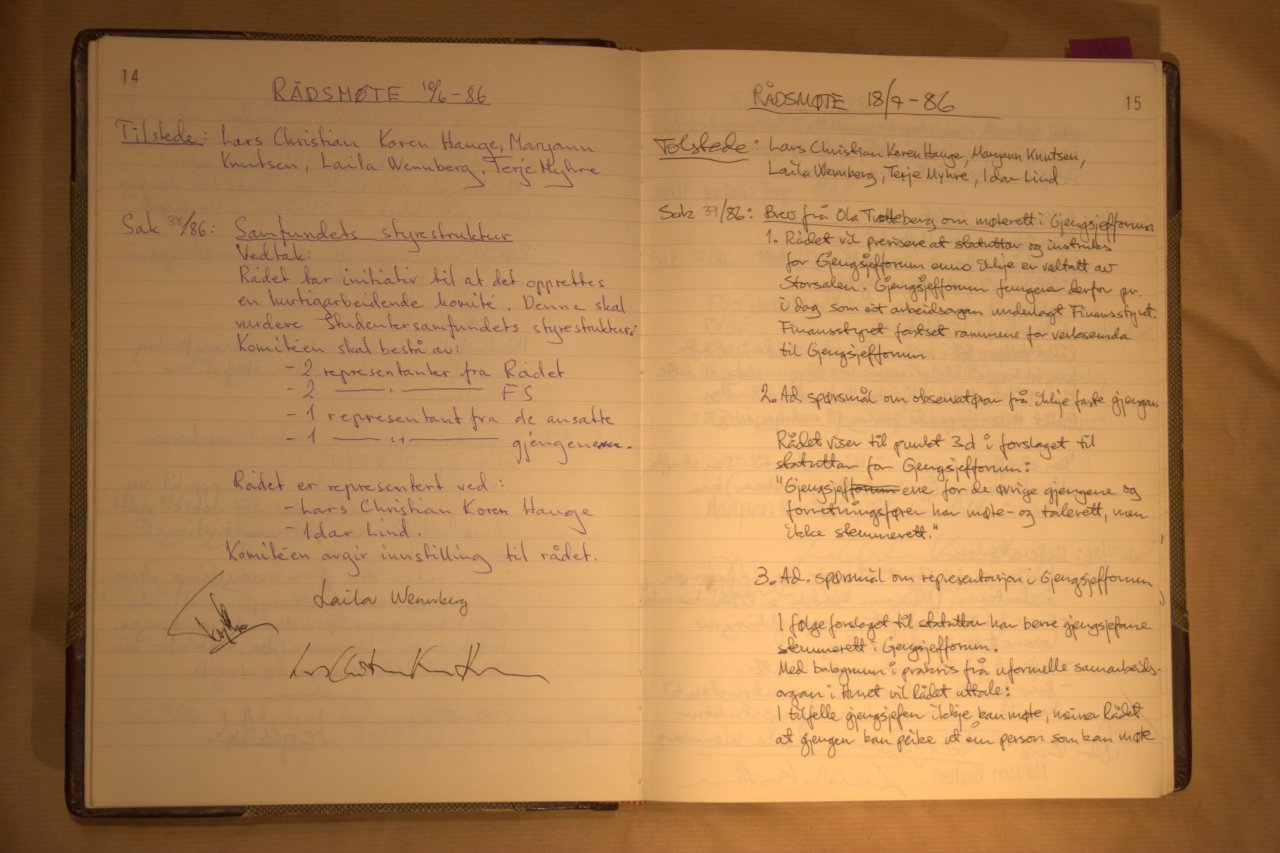 14
RÅDSMØTE 10/6-86
Tilstede: Lars Christian Koren Hauge, Maryann
Knutsen, Laila Wennberg, Terje Myhre
Sak 38/86: Samfundets styrestruktur
Vedtak:
Rådet tar initiativ til at det opprettes
en hurtigarbeidende komité. Denne skal
vurdere Studentersamfundets styrestruktur.
Komitéen skal bestå av:
- 2 representanter fra Rådet
- 2 —— " —— FS
- 1 representant fra de ansatte
- 1 —— " —— gjengene.
Rådet er representert ved:
- Lars Christian Koren Hauge
- Idar Lind.
Komitéen avgir innstilling til rådet.
Laila Wennberg
RÅDSMØTE 18/9-86
15
Tilstede: Lars Christian Koren Hauge, Maryann Knutsen,
Laila Wennberg, Terje Myhre, Idar Lind.
Sak 39/86: Brev frå Ola om møterett i Gjengsjefforum
1. Rådet vil presisere at statuttar og instruks
for Gjengsjefforum enno ikkje er vedtatt av
Storsalen. Gjengsjefforum fungerer derfor pr.
i dag som eit arbeidsorgan underlagt Finansstyret.
Finansstyret fastset rammene for verksemda
til Gjengsjefforum.
2. Ad. spørsmål om observatørar frå ikkje faste gjengar.
Rådet viser til punkt 3d i forslaget til
statuttar for Gjengsjefforum:
"Gjengsjefene for de øvrige gjengene og
forretningsfører har møte- og talerett, men
ikke stemmerett."
3. Ad. spørsmål om representasjon i Gjengsjefforum
I følge forslaget til statuttar har berre gjengsjefane
stemmerett i Gjengsjefforum.
Med bakgrunn i praksis frå uformelle samarbeids-
organ i huset vil Rådet uttale:
I tilfelle gjengsjefen ikkje kan møte, meiner Rådet
at gjengen kan peike ut éin person som kan møte